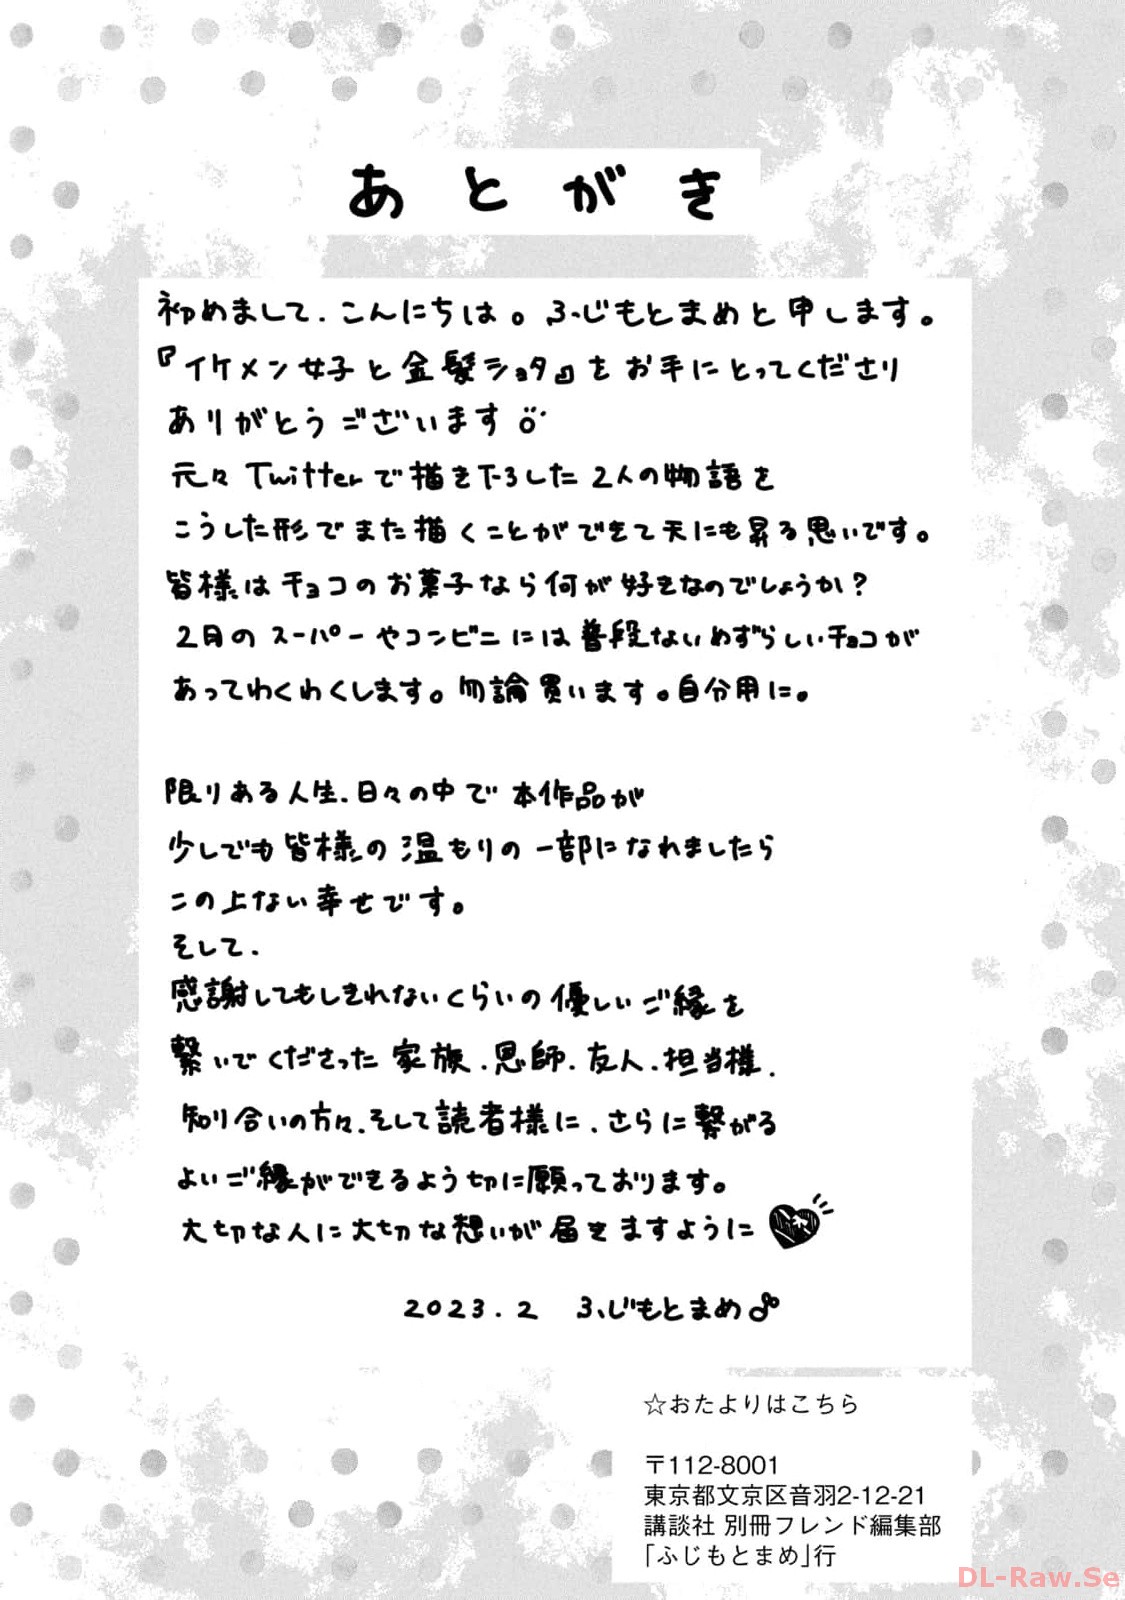 あとがき
初めまして、こんにちは。ふじもとまめと申します。
『イケメン女子と金髪ショタ』をお手にとってくださり
ありがとうございます
元々Twitterで描き下ろした2人の物語を
こうした形でまた描くことができて天にも昇る思いです。
皆様はチョコのお菓子なら何が好きなのでしょうか？
2月のスーパーやコンビニには普段ないめずらしいチョコが
あってわくわくします。勿論買います。自分用に。
限りある人生、日々の中で本作品が
少しでも皆様の温もりの一部になれましたら
この上ない幸せです。
そして、
感謝してもしきれないくらいの優しいご縁を
繋いでくださった家族、恩師、友人、担当様、
知り合いの方々、そして読者様に、さらに繋がる
よいご縁ができるよう切に願っております。
大切な人に大切な想いが届きますように
2023.2 ふじもとまめ
☆おたよりはこちら
〒112-8001
東京都文京区音羽2-12-21
講談社 別冊フレンド編集部
「ふじもとまめ」行
DL-Raw.Se